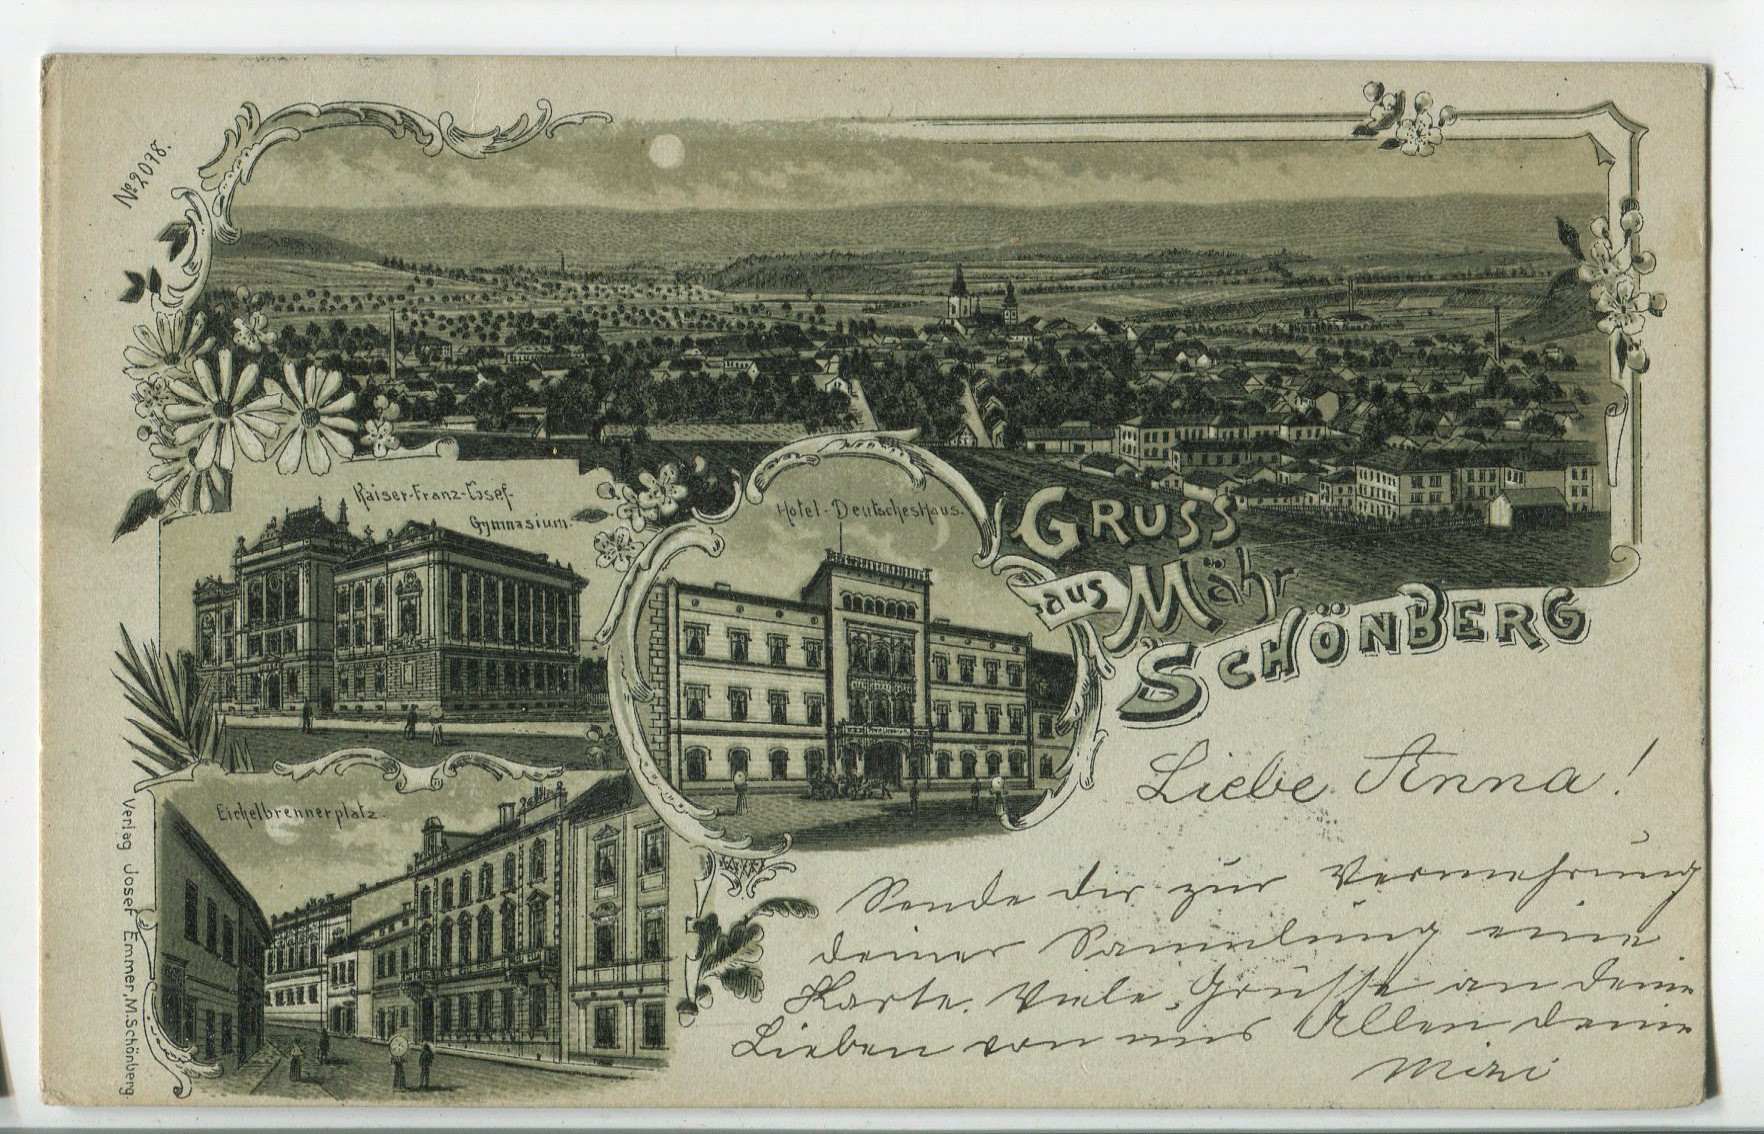 No 2078.
Kaiser-Franz-Josef-
Gymnasium.
Hotel-Deutsches Haus.
GRUSS
aus Mähr
SCHÖNBERG
Eichelbrennerplatz.
Verlag Josef Emmer, M. Schönberg.
Liebe Anna!
Sende dir zur Vermehrung
deiner Sammlung eine
Karte. Viele Grüsse an deine
Lieben von uns Allen deine
Mizi